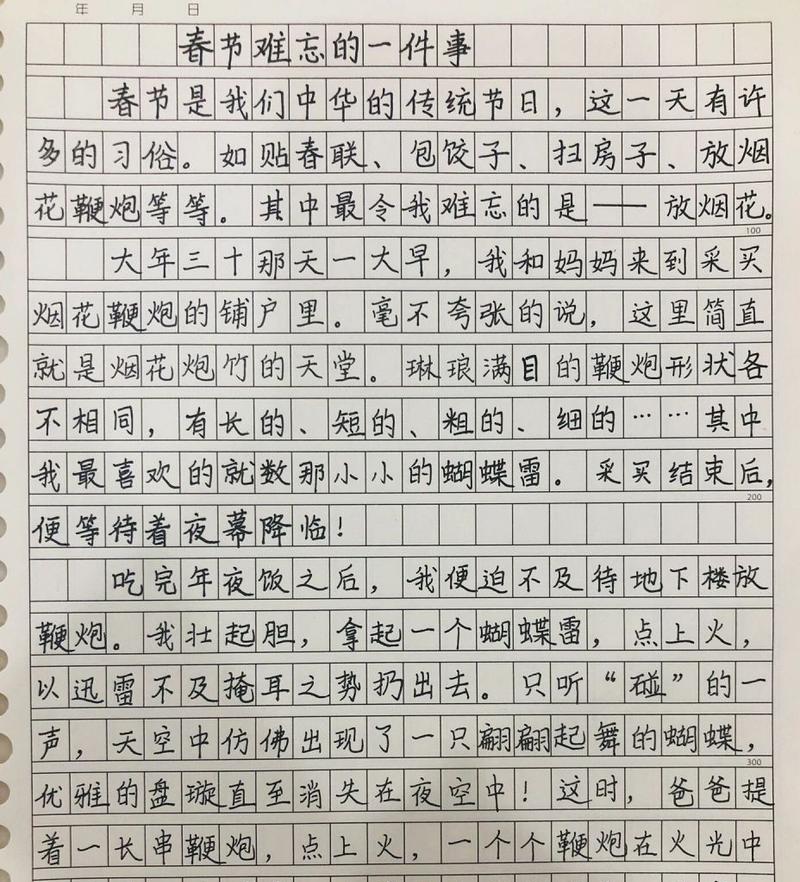 年 月 日
春节难忘的一件事
春节是我们中华的传统节日，这一天有许
多的习俗。如贴春联、包饺子、扫房子、放烟
花鞭炮等等。其中最令我难忘的是——放烟花。
100
大年三十那天一大早，我和妈妈来到采买
烟花鞭炮的铺户里。毫不夸张的说，这里简直
就是烟花炮竹的天堂。琳琅满目的鞭炮形状各
不相同，有长的、短的、粗的、细的……其中
我最喜欢的就数那小小的蝴蝶雷。采买结束后，
200
便等待着夜幕降临！
吃完年夜饭之后，我便迫不及待地下楼放
鞭炮。我壮起胆，拿起一个蝴蝶雷，点上火，
以迅雷不及掩耳之势扔出去。只听“碰”的一
声，天空中仿佛出现了一只翩翩起舞的蝴蝶，
300
优雅的盘璇直至消失在夜空中！这时，爸爸提
着一长串鞭炮，点上火，一个个鞭炮在火光中